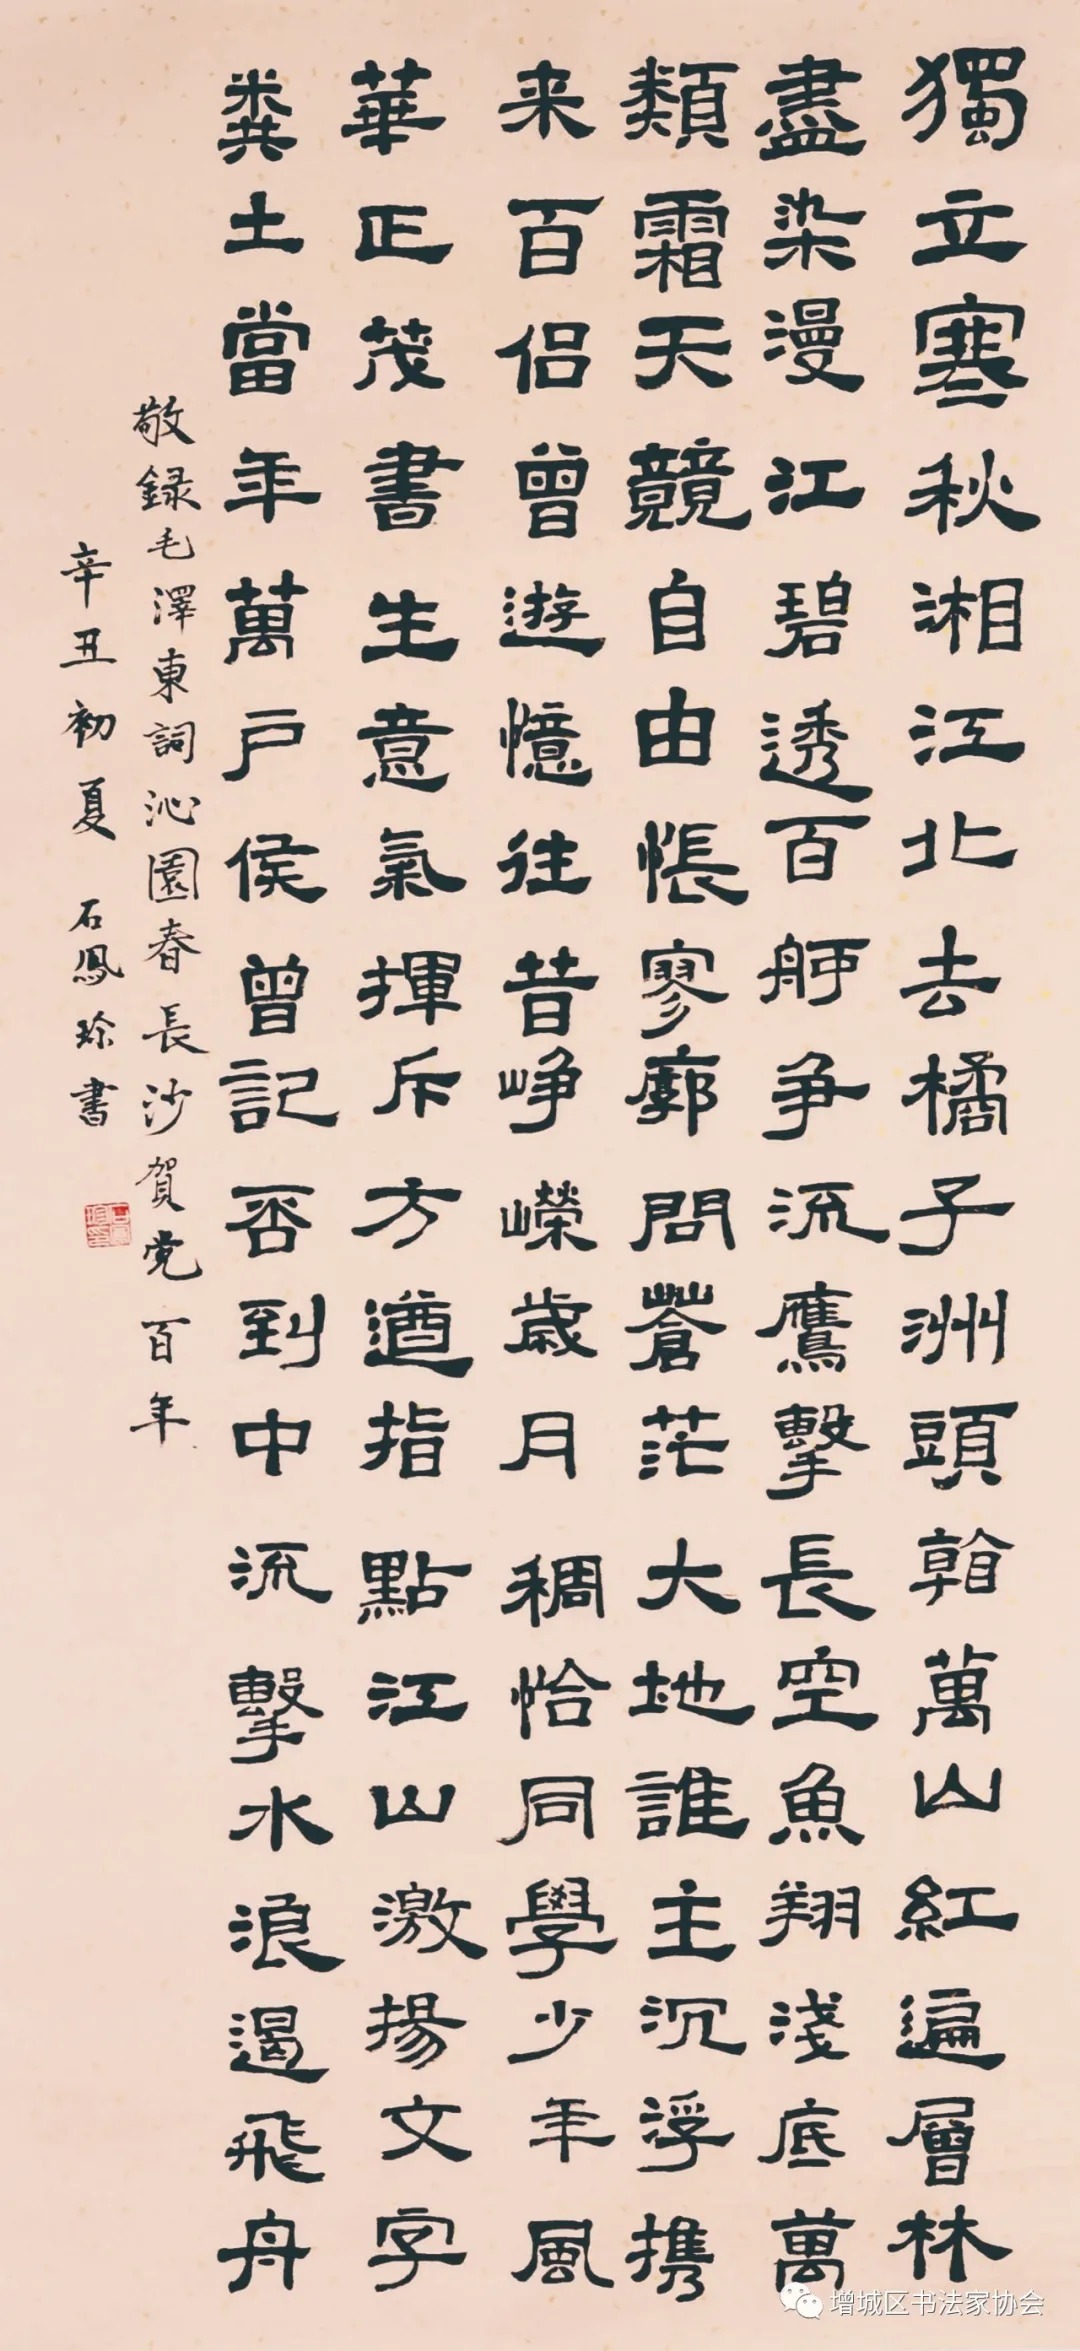 獨立寒秋湘江北去橘子洲頭看萬山紅遍層林
盡染漫江碧透百舸争流鷹擊長空魚翔淺底萬
類霜天競自由悵寥廓問蒼茫大地誰主沉浮携
来百侣曾遊憶往昔峥嶸歲月稠恰同學少年風
華正茂書生意氣揮斥方遒指點江山激揚文字
糞土當年萬户侯曾記否到中流擊水浪遏飛舟
敬録毛澤東詞沁園春長沙賀党百年
辛丑初夏 石鳳珍書
增城区书法家协会